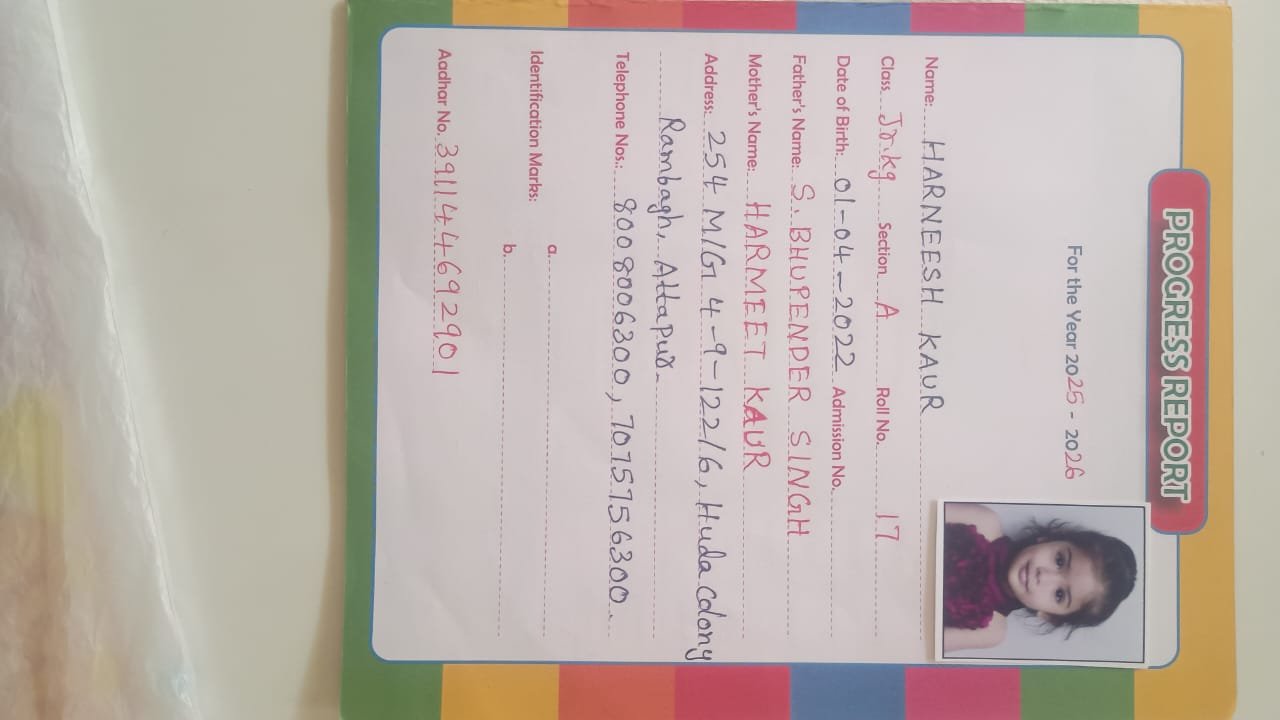 PROGRESS REPORT
For the Year 2025 - 2026
Name: HARNEESH KAUR
Class. Jr.kg Section A Roll No. 17
Date of Birth: 01-04-2022 Admission No.
Father's Name: S. BHUPENDER SINGH
Mother's Name: HARMEET KAUR
Address: 254 MIG 4-9-122/6, Huda Colony
Rambagh, Attapur.
Telephone Nos.: 8008006300, 7075756300.
Identification Marks: a.
b.
Aadhar No. 391144692901